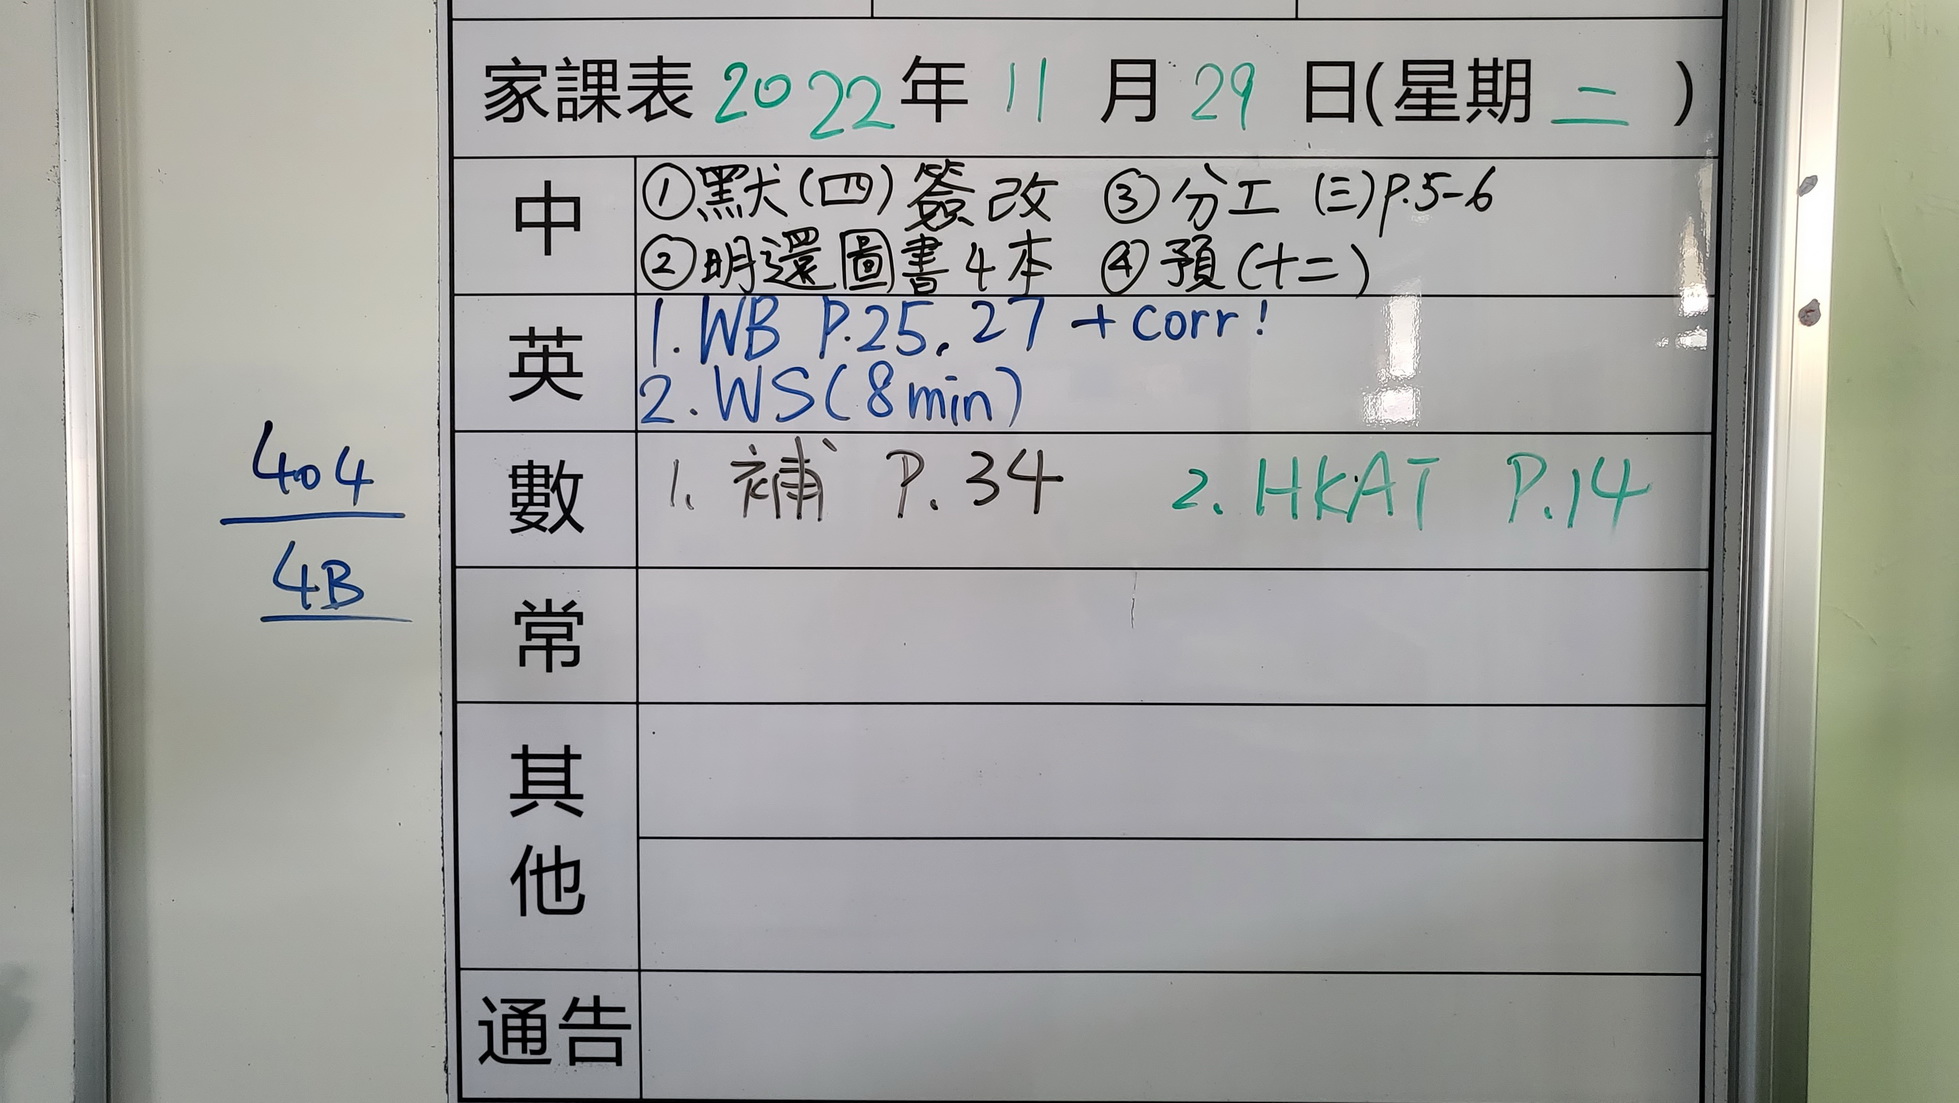 家課表 2022年 11 月 29 日(星期 二 )
中
①默(四)簽改 ③分工 (三)P.5-6
②明還圖書4本 ④預(十二)
英
1. WB P.25, 27 + corr!
2. WS(8min)
數
1. 補 P.34 2. HKAT P.14
常
其他
通告
404
4B